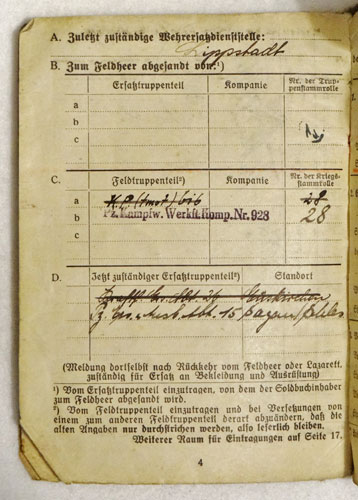 A. Zuletzt zuständige Wehrersatzdienststelle:
Lippstadt
B. Zum Feldheer abgesandt von:¹)
Ersatztruppenteil Kompanie Nr. der Truppenstammrolle
a
b
c
C. Feldtruppenteil²) Kompanie Nr. der Kriegsstammrolle
a 28
Pz. Kampfw. Werkst. Komp. Nr. 928
b 28
c
D. Jetzt zuständiger Ersatztruppenteil²) Standort
(Meldung dortselbst nach Rückkehr vom Feldheer oder Lazarett.
zuständig für Ersatz an Bekleidung und Ausrüstung)
¹) Vom Ersatztruppenteil einzutragen, von dem der Soldbuchinhaber
zum Feldheer abgesandt wird.
²) Vom Feldtruppenteil einzutragen und bei Versetzungen von
einem zum anderen Feldtruppenteil derart abzuändern, daß die
alten Angaben nur durchstrichen werden, also leserlich bleiben.
Weiterer Raum für Eintragungen auf Seite 17.
4